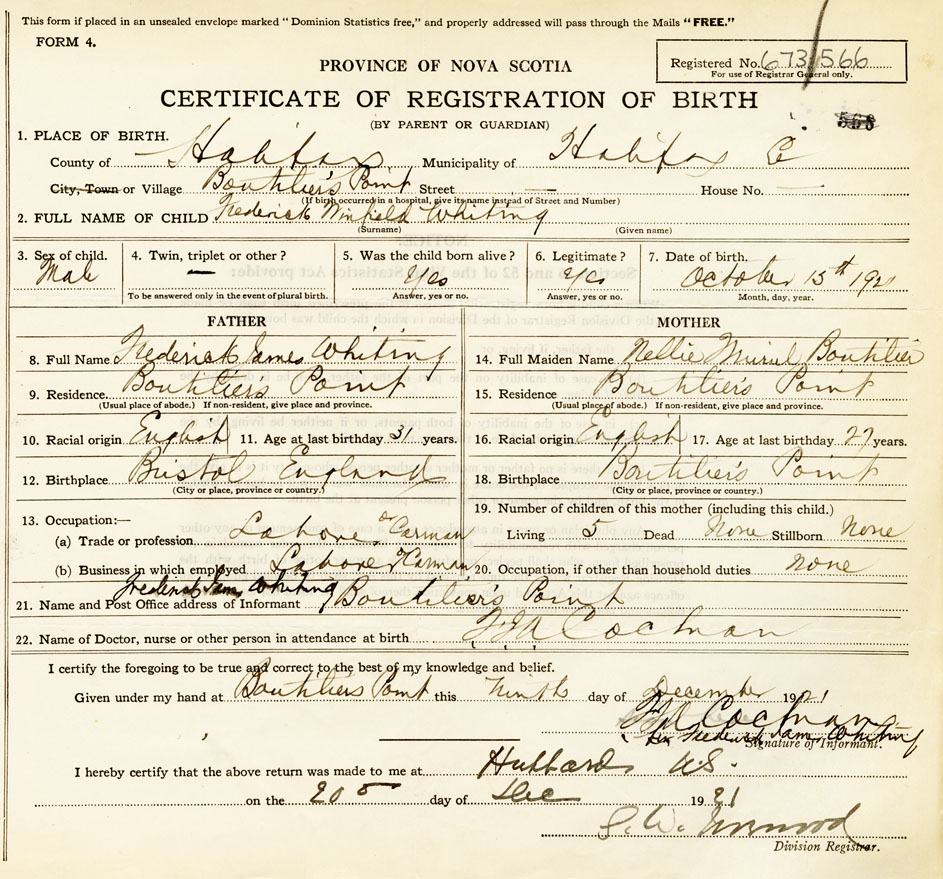 This form if placed in an unsealed envelope marked "Dominion Statistics free," and properly addressed will pass through the Mails "FREE."
FORM 4.
Registered No. 673566
For use of Registrar General only.
PROVINCE OF NOVA SCOTIA
CERTIFICATE OF REGISTRATION OF BIRTH
(BY PARENT OR GUARDIAN)
568
1. PLACE OF BIRTH.
County of Halifax Municipality of Halifax Co
City, Town or Village Boutilier's Point Street — House No. —
(If birth occurred in a hospital, give its name instead of Street and Number)
2. FULL NAME OF CHILD Frederick Winfield Whiting
(Surname) (Given name)
3. Sex of child. 4. Twin, triplet or other? 5. Was the child born alive? 6. Legitimate? 7. Date of birth.
Male — Yes Yes October 15th 1921
To be answered only in the event of plural birth. Answer, yes or no. Answer, yes or no. Month, day, year.
FATHER MOTHER
8. Full Name Frederick James Whiting 14. Full Maiden Name Nellie Muriel Boutilier
9. Residence. Boutilier's Point 15. Residence Boutilier's Point
(Usual place of abode.) If non-resident, give place and province. (Usual place of abode.) If non-resident, give place and province.
10. Racial origin English 11. Age at last birthday 31 years. 16. Racial origin English 17. Age at last birthday 27 years.
12. Birthplace Bristol England 18. Birthplace Boutilier's Point
(City or place, province or country.) (City or place, province or country.)
13. Occupation:— 19. Number of children of this mother (including this child.)
(a) Trade or profession Labore or Carman Living 5 Dead None Stillborn None
(b) Business in which employed Labore Carman 20. Occupation, if other than household duties None
21. Name and Post Office address of Informant Frederick Jam Whiting Boutilier's Point
22. Name of Doctor, nurse or other person in attendance at birth Cochran
I certify the foregoing to be true and correct to the best of my knowledge and belief.
Given under my hand at Boutilier's Point this Ninth day of December 1921
Cochran
for Frederick Jam Whiting
Signature of Informant.
I hereby certify that the above return was made to me at Hubbards N.S.
on the 20 day of Dec 1921
Division Registrar.